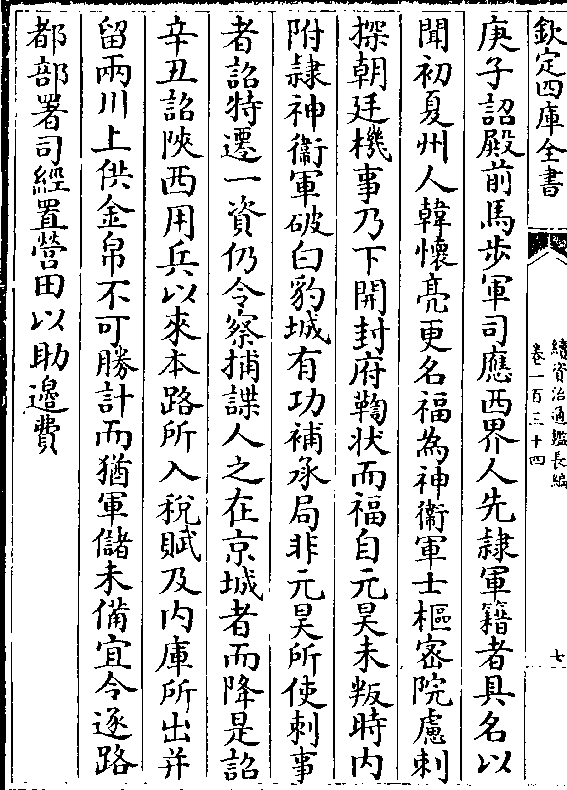 欽定四庫全書
續資治通鑑長編
卷一百三十四
七
庚子詔殿前馬步軍司應西界人先隷軍籍者具名以
聞初夏州人韓懷亮更名福為神衞軍士樞宻院慮刺
探朝廷機事乃下開封府鞫状而福自元昊未叛時内
附隷神衞軍破白豹城有功補承局非元昊所使刺事
者詔特遷一資仍令察捕諜人之在京城者而降是詔
辛丑詔陜西用兵以來本路所入稅賦及内庫所出并
留兩川上供金帛不可勝計而猶軍儲未備宜令逐路
都部署司經置營田以助邉費